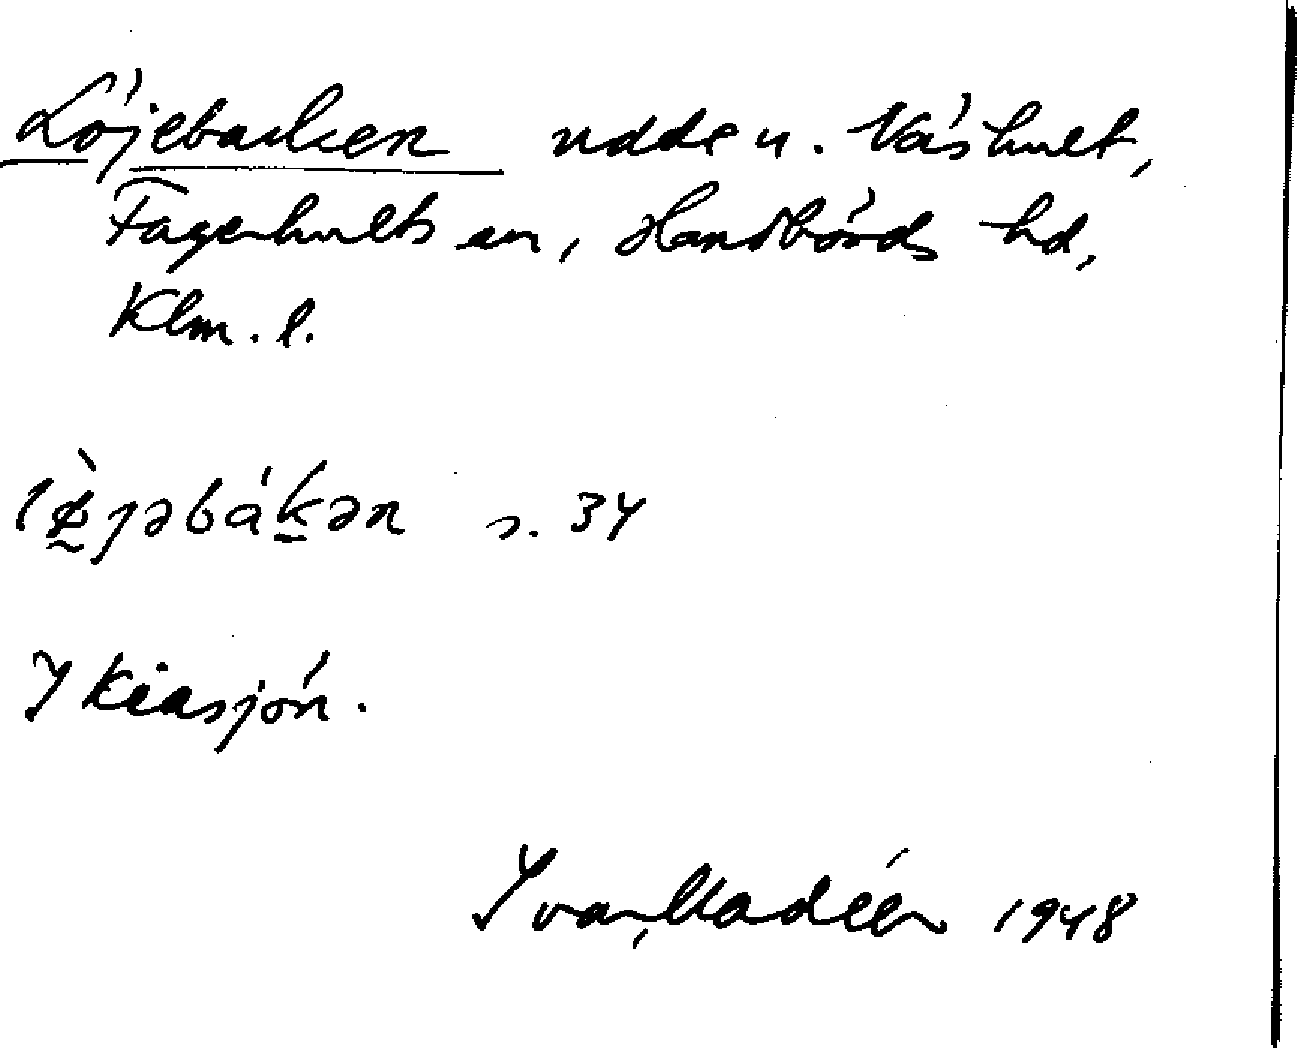 Löjebacken udde u. Våshult,
Fagerhults sn, Handbörds hd,
Klm. l.
lø̰̀jəbák̠ən s. 34
I Kiasjön.
Ivar Modéer 1948